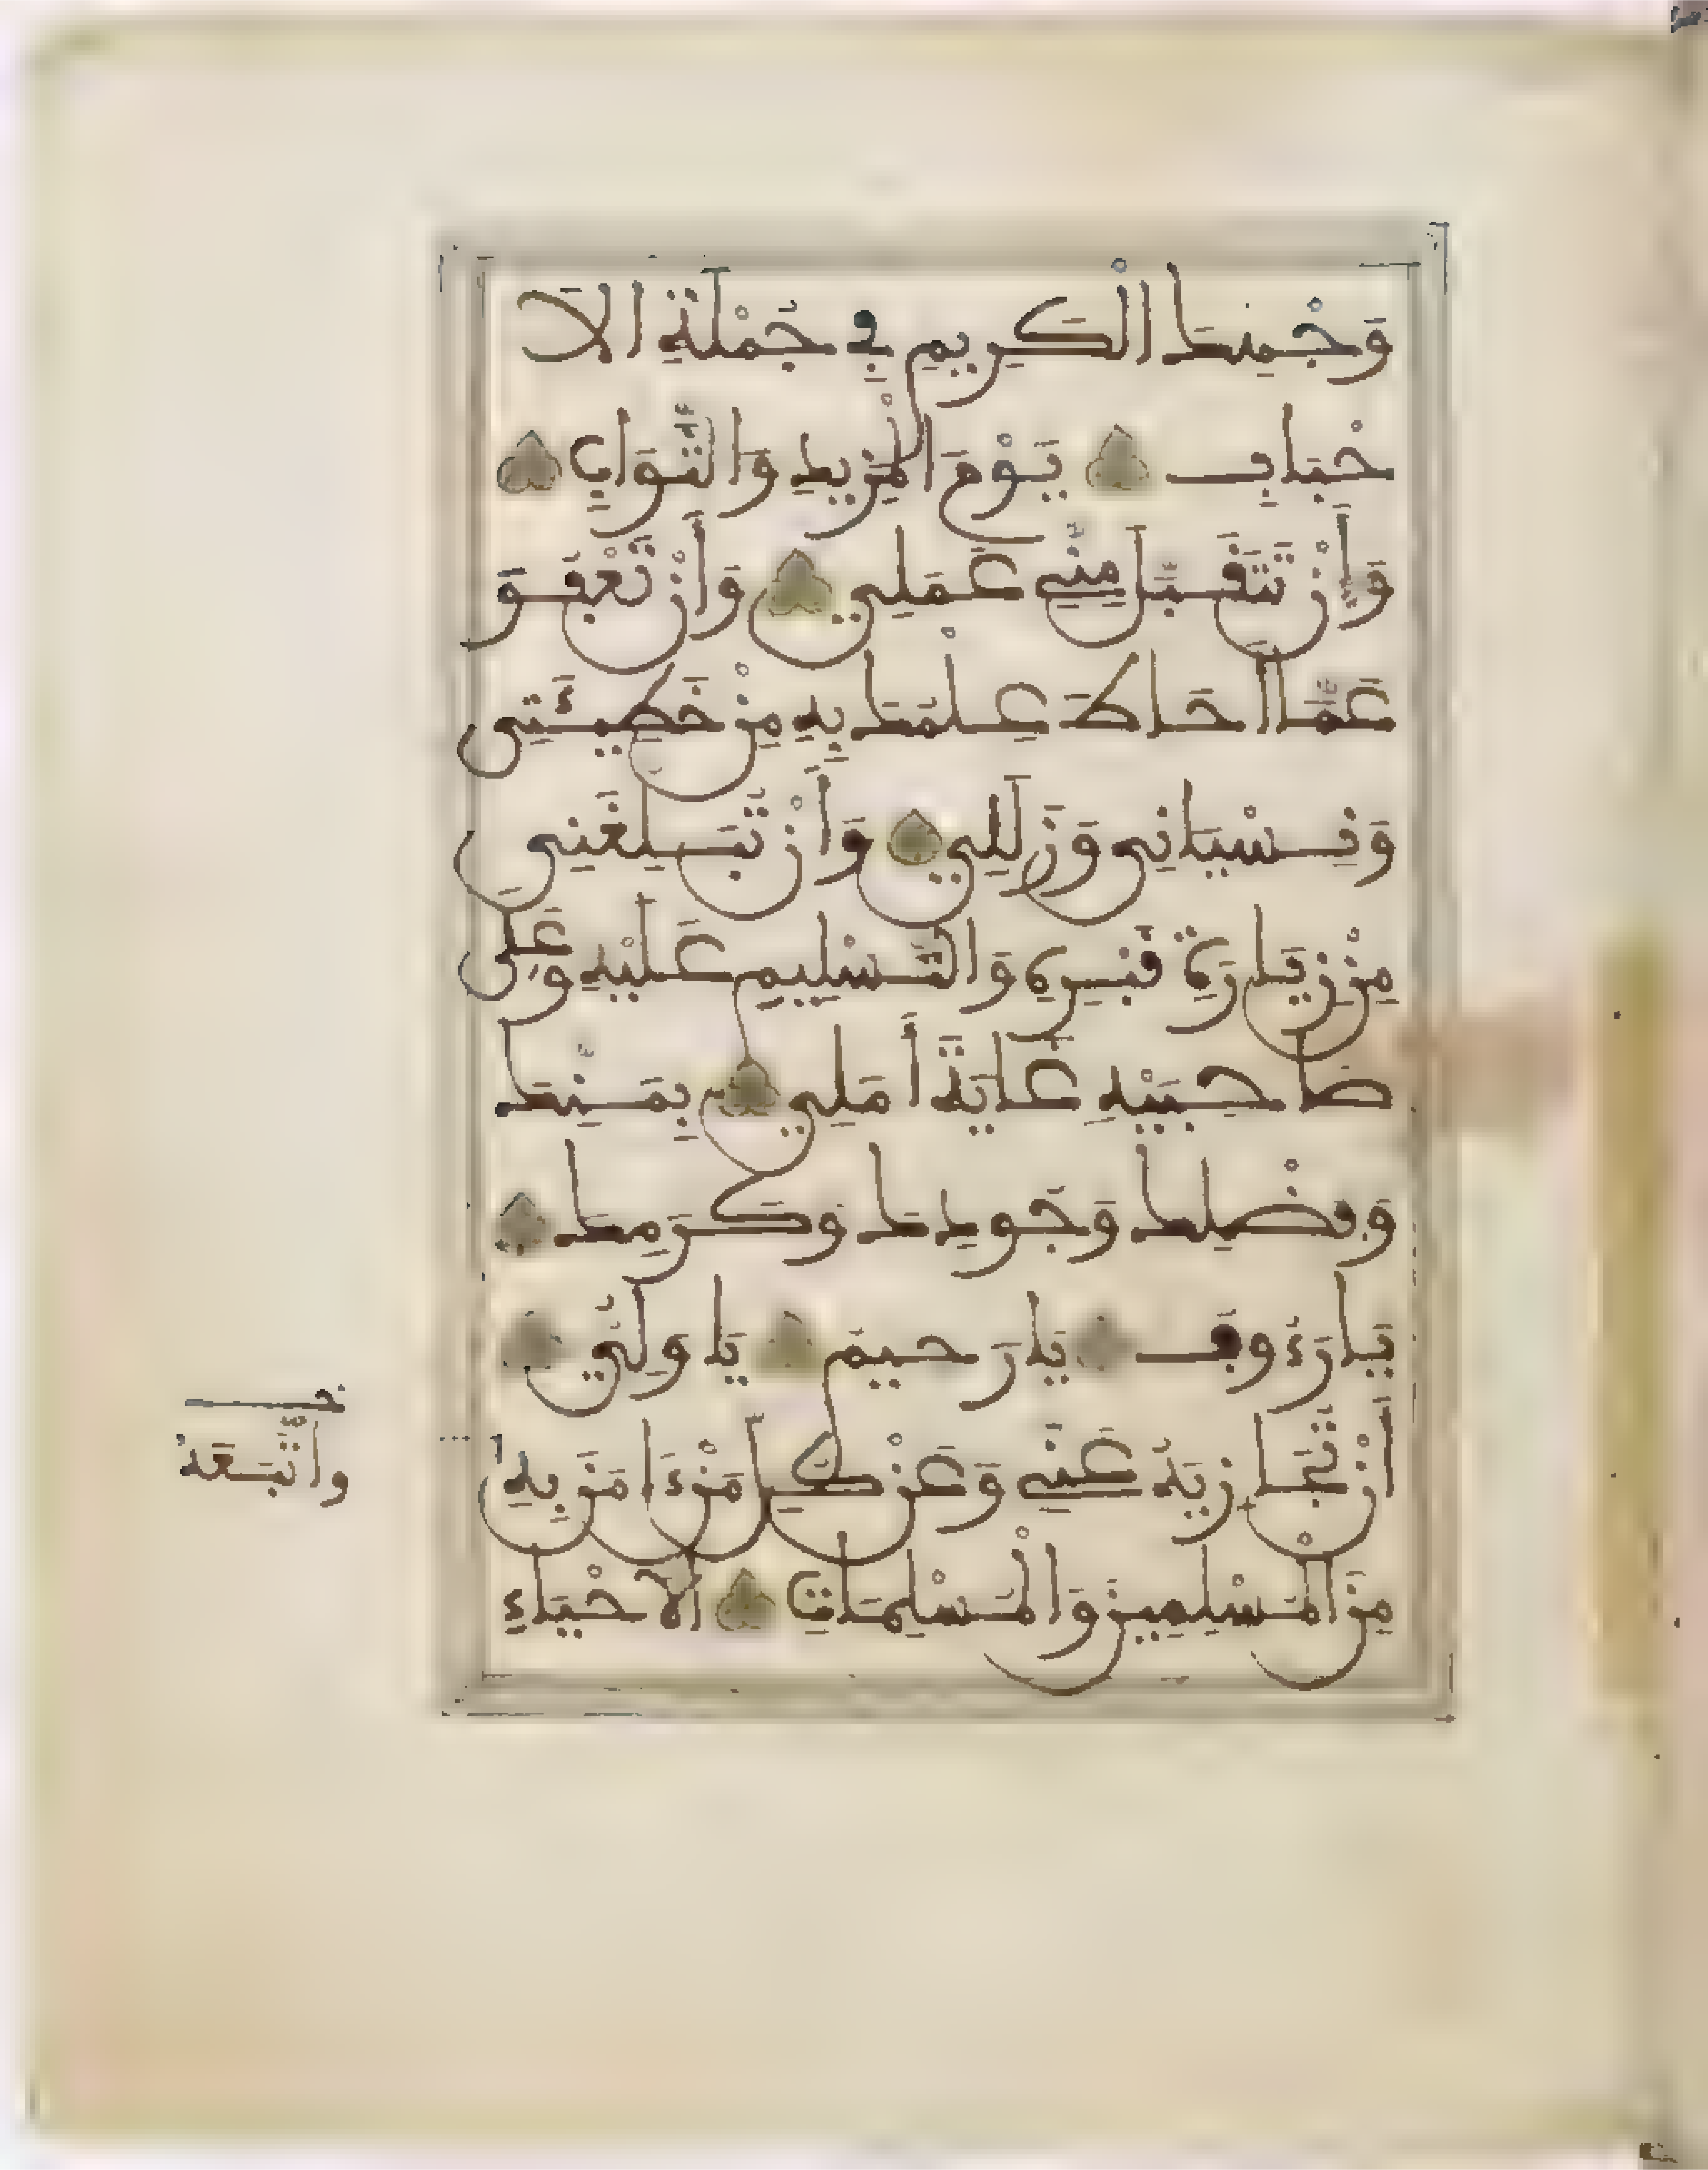 وَجْهِكَ الْكَرِيمِ فِي جُمْلَةِ الَا
حْبَابِ يَوْمَ الْمَزِيدِ وَالثَّوَابِ
وَأَنْ تَتَقَبَّلَ مِنِّي عَمَلِي وَأَنْ تَعْفُوَ
عَمَّا أَحَاطَ عِلْمُكَ بِهِ مِنْ خَطِيئَتِي
وَنِسْيَانِي وَزَلَلِي وَأَنْ تُبَلِّغَنِي
مِنْ زِيَارَةِ قَبْرِهِ وَالتَّسْلِيمِ عَلَيْهِ وَعَلَى
صَاحِبَيْهِ غَايَةَ أَمَلِي بِمَنِّكَ
وَفَضْلِكَ وَجُودِكَ وَكَرَمِكَ
يَا رَءُوفُ يَا رَحِيمُ يَا وَلِيُّ
أَنْ تُجَازِيَهُ عَنِّي وَعَنْ كُلِّ مَنْ ءَامَنَ بِهِ
وَاتَّبَعَهُ
مِنَ الْمُسْلِمِينَ وَالْمُسْلِمَاتِ الَاحْيَاءِ